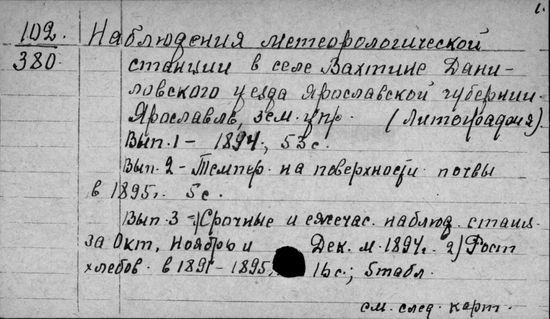 1.
102. Наблюдения метеорологической
380. станции в селе Вахтине Дани-
ловского уезда Ярославской губернии.
Ярославль, зем. упр. (Литография)
Вып. 1 - 1894, 53 с.
Вып. 2 - Темпер. на поверхности почвы
в 1895 г. 5 с.
Вып. 3 - Срочные и ежечас. наблюд. станц.
за Окт, Ноябрь и Дек. м. 1894 г. 2) Рост
хлебов в 1895, 16 с.; 5 табл.
см. след. карт.